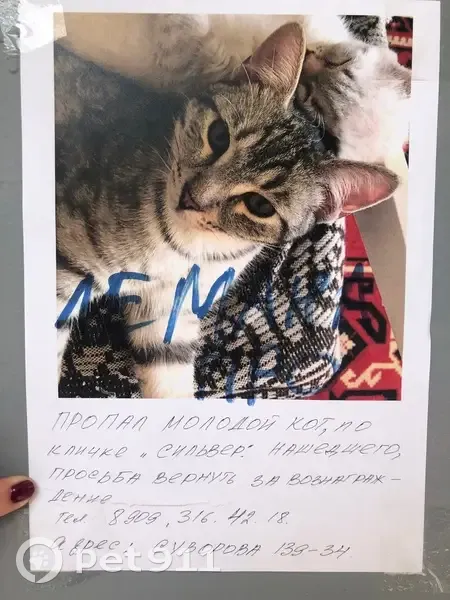 ПРОПАЛ МОЛОДОЙ КОТ, ПО
КЛИЧКЕ „СИЛЬВЕР". НАШЕДШЕГО,
ПРОСЬБА ВЕРНУТЬ ЗА ВОЗНАГРАЖ-
ДЕНИЕ
ТЕЛ 8909. 316. 42. 18.
АДРЕС: СУВОРОВА 139-34.
pet911